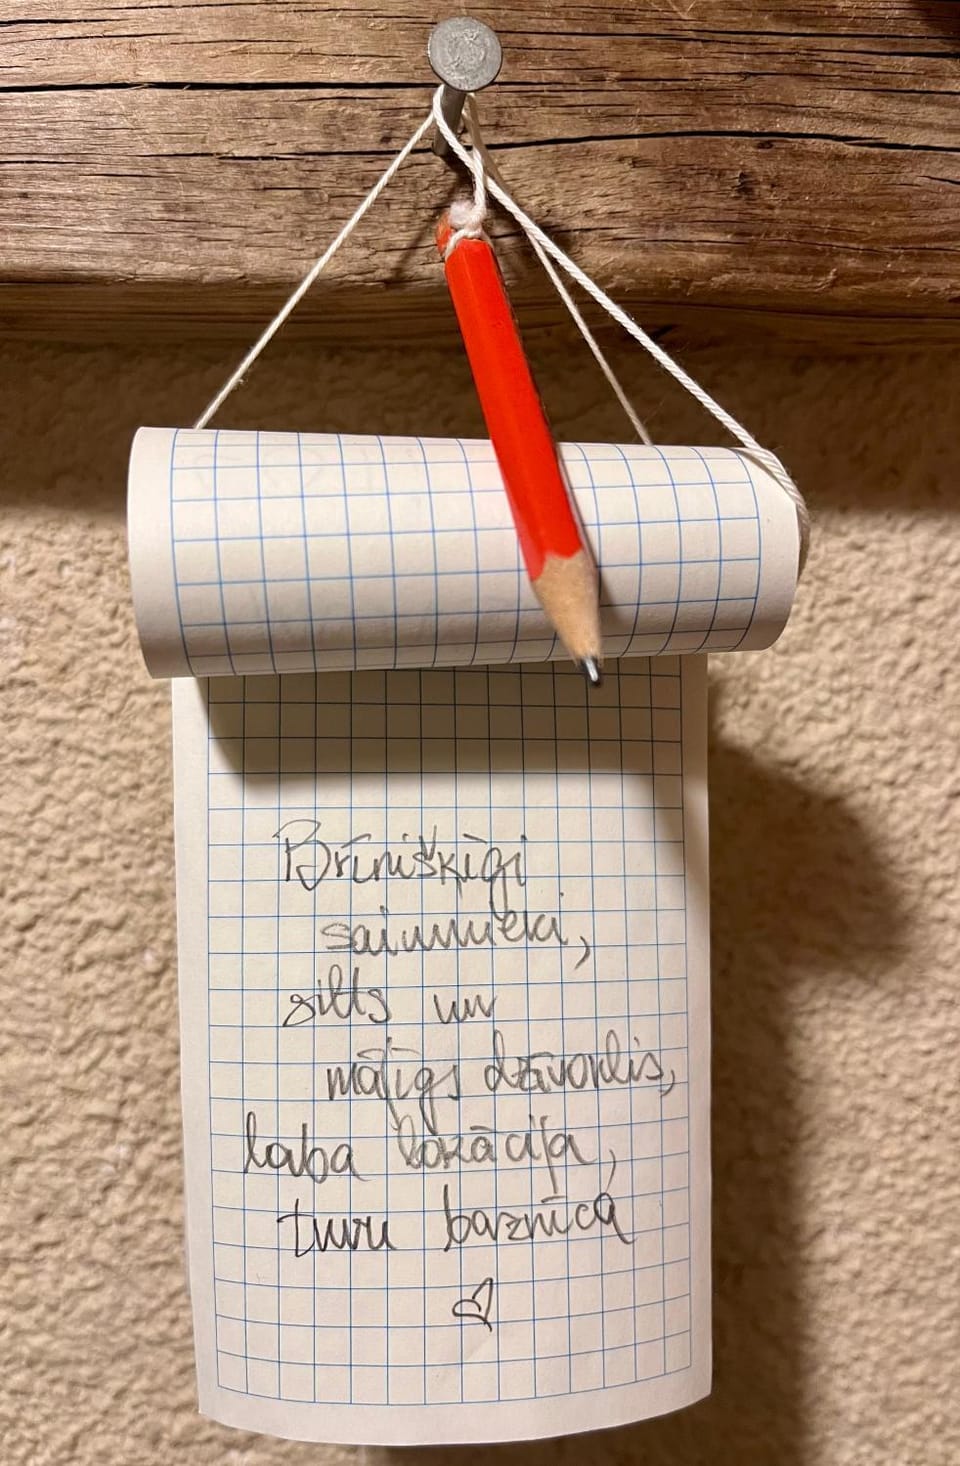 Brīnišķīgi
saimnieki,
silts un
mājīgs dzīvoklis,
laba lokācija,
tuvu baznīca